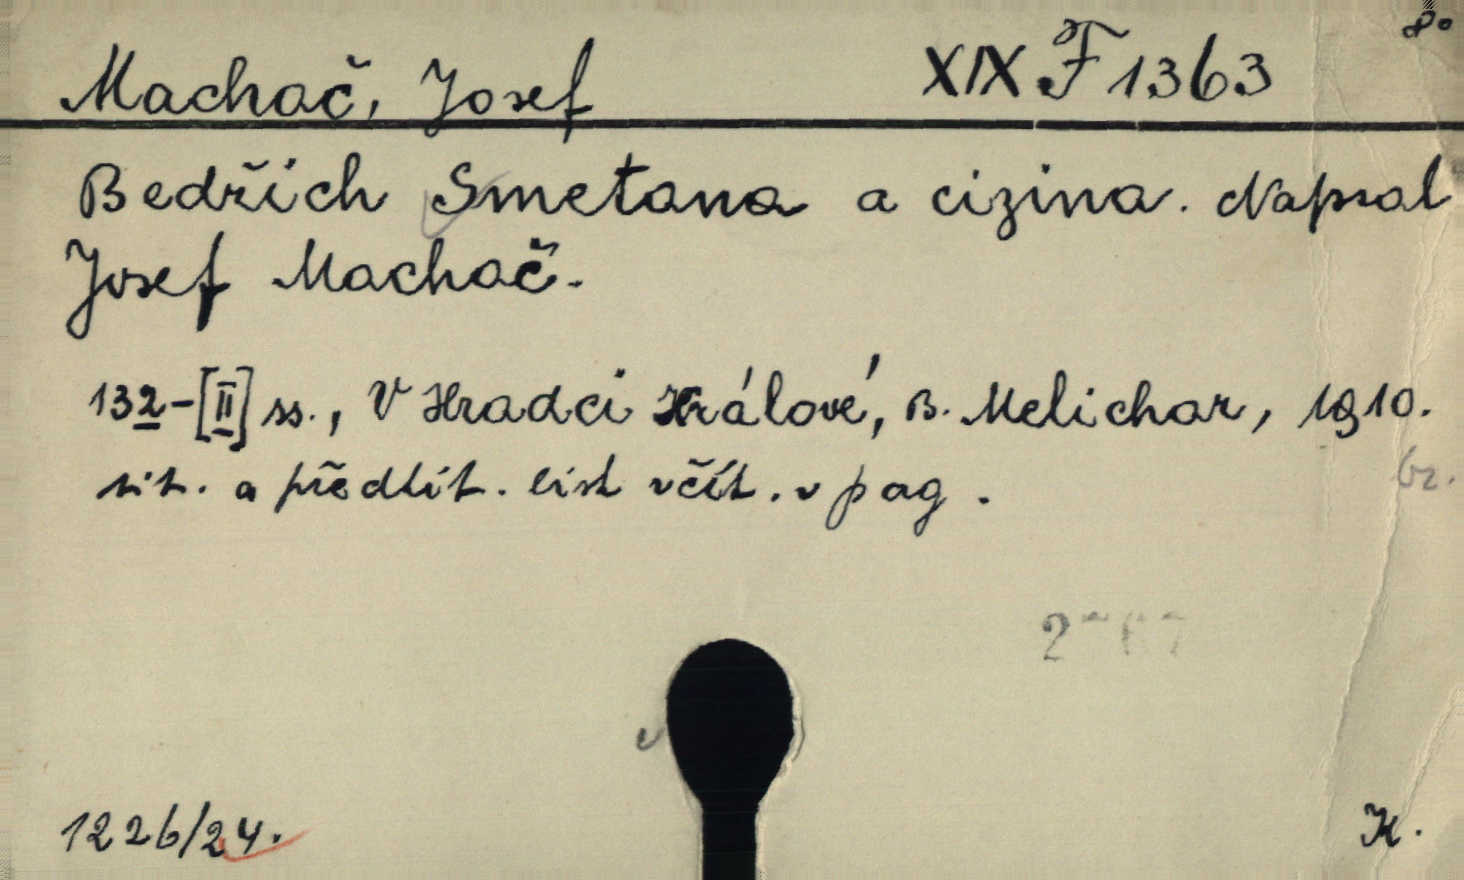 8°
Machač, Josef XIX F 1363
Bedřich Smetana a cizina. Napsal
Josef Machač.
132-[II] ss., V Hradci Králové, B. Melichar, 1910.
tit. a předtit. list včít. v pag.
br.
1226/24.
K.